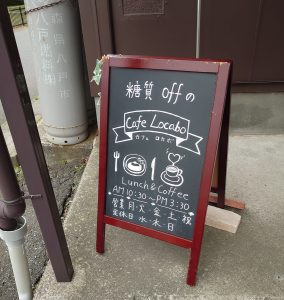 糖質 offの
Cafe Locabo
カフェ ロカボ
Lunch & Coffee
AM 10:30 ~ PM 3:30
営業 月・火・金・土・祝
定休日 水・木・日
八戸燃料